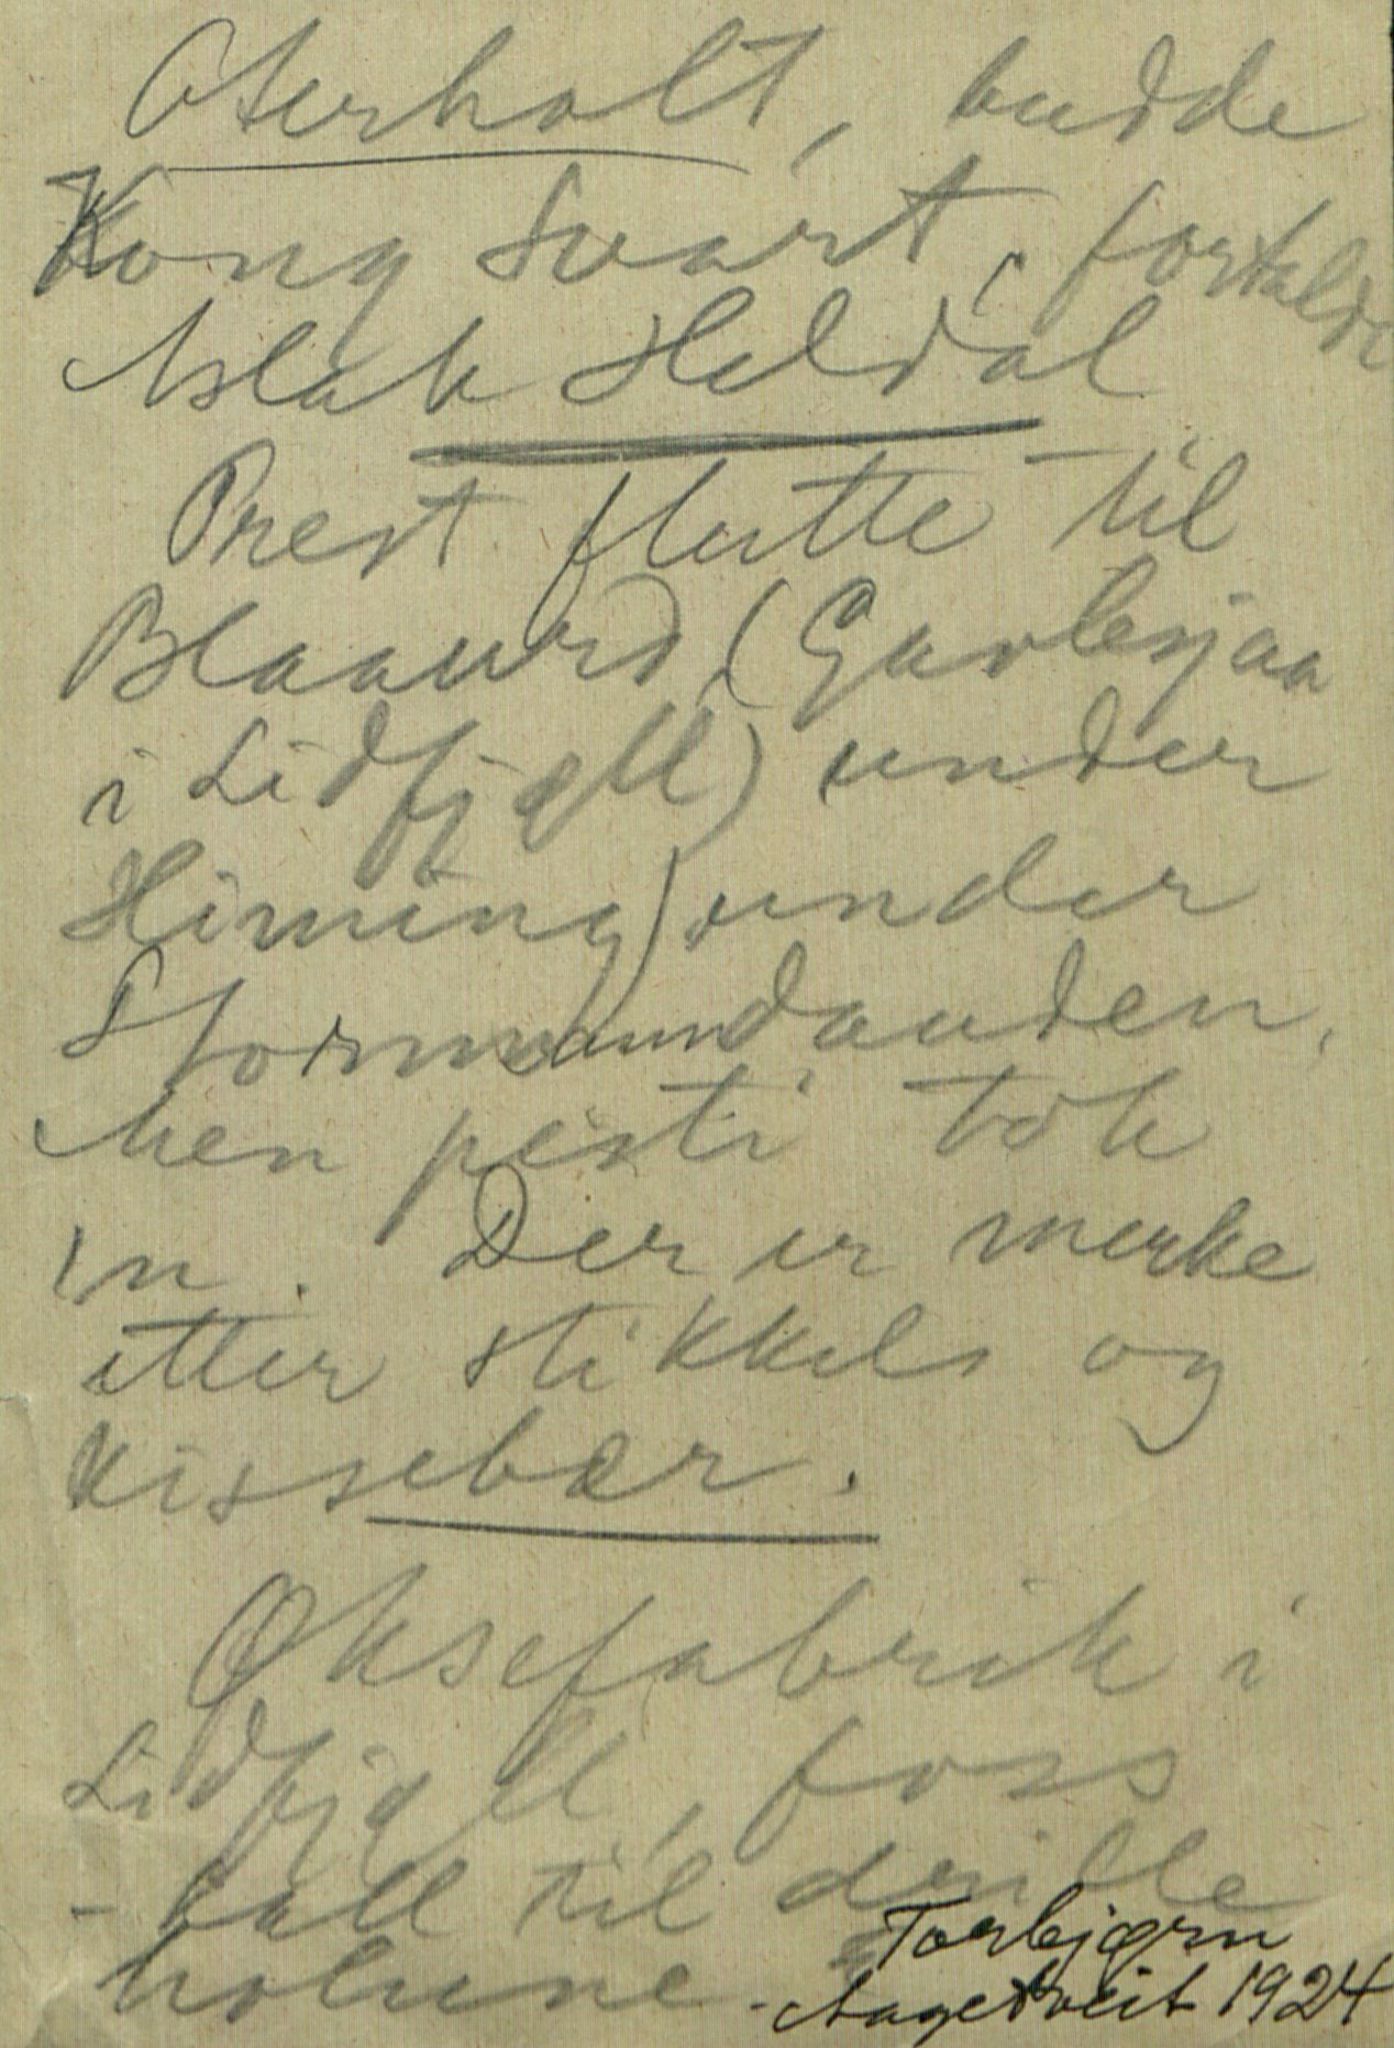 Oterholt, budde
Kong Svart, fortalde
Aslak Heldal
Prest flutte til
Blaaurd, (Garlesjaa
i Lidfjell) under
Himing) under
Stormanndauden,
Men pesti tok
'n. Der er merke
etter stikkels og
kissebær.
Øksefabrik i
Lidfjell, foss
-fall til
holune
Torbjørn
Aagetveit 1924